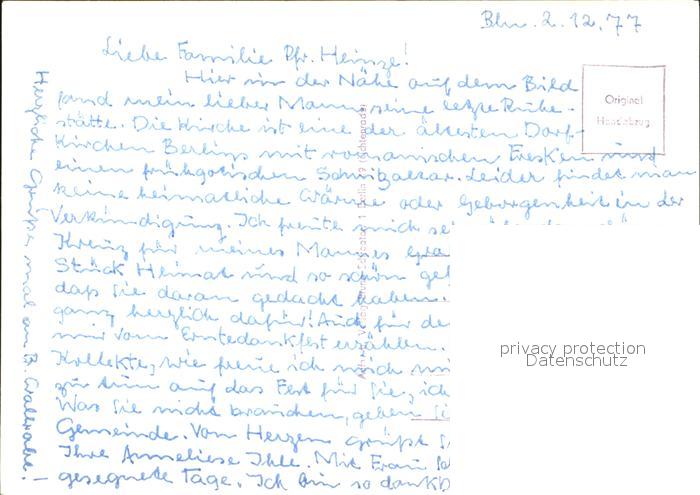 Bln. 2.12.77
Liebe Familie Pfr. Heinze!
Hier in der Nähe auf dem Bild
fand mein lieber Mann seine letzte Ruhe-
stätte. Die Kirche ist eine der ältesten Dorf-
kirchen Berlins mit romanischen Fresken und
einen frühgotischen Schnitzaltar. Leider findet man
keine heimatliche Wärme oder Geborgenheit in der
Verkündigung. Ich freute mich
Kreuz für meines Mannes
Stück Heimat und so schön
daß Sie daran gedacht haben.
ganz herzlich dafür! Auch für
mir vom Erntedankfest erzählen.
Kollekte, wie freue ich mich
zu tun auf das Fest für Sie, ich
Was Sie nicht brauchen, geben
Gemeinde. Von Herzen grüßt
Ihre Anneliese Ihle. Mit Frau
gesegnete Tage. Ich bin so
Herzliche Grüße mal an
Original
Handabzug
privacy protection
Datenschutz